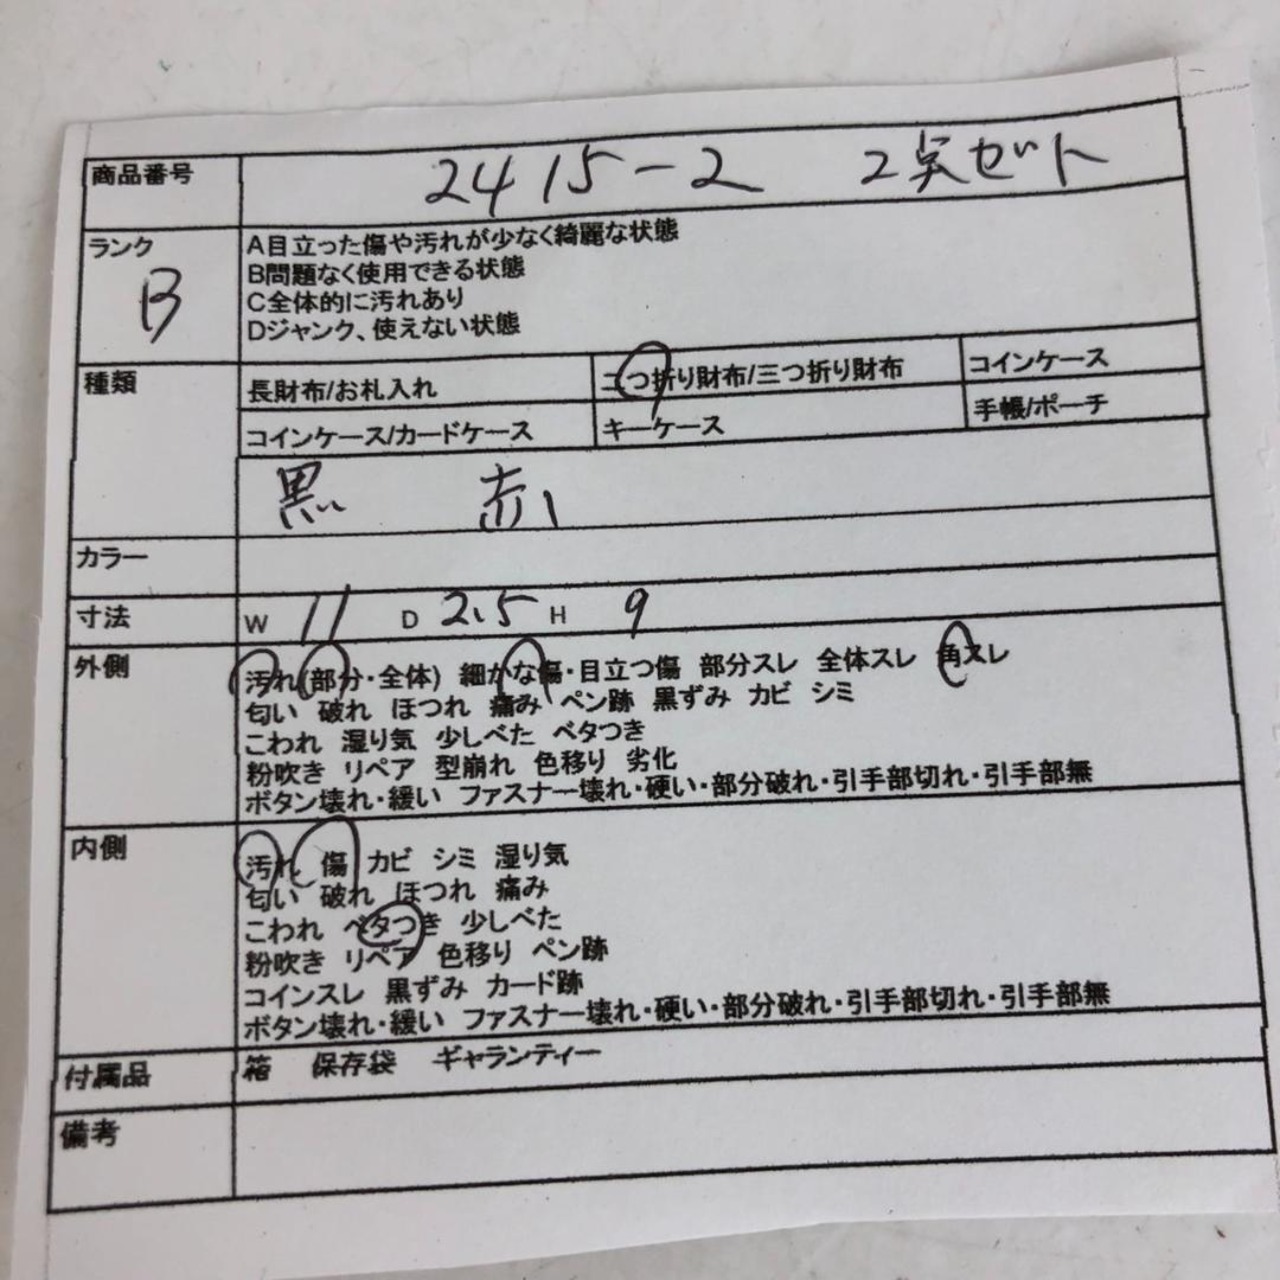 商品番号 2415-2 2点セット
ランク B
A目立った傷や汚れが少なく綺麗な状態
B問題なく使用できる状態
C全体的に汚れあり
Dジャンク、使えない状態
種類 長財布/お札入れ 二つ折り財布/三つ折り財布 コインケース
コインケース/カードケース キーケース 手帳/ポーチ
黒 赤
カラー
寸法 W 11 D 2.5 H 9
外側 汚れ(部分・全体) 細かな傷・目立つ傷 部分スレ 全体スレ 角スレ
匂い 破れ ほつれ 痛み ペン跡 黒ずみ カビ シミ
こわれ 湿り気 少しべた ベタつき
粉吹き リペア 型崩れ 色移り 劣化
ボタン壊れ・緩い ファスナー壊れ・硬い・部分破れ・引手部切れ・引手部無
内側 汚れ 傷 カビ シミ 湿り気
匂い 破れ ほつれ 痛み
こわれ ベタつき 少しべた
粉吹き リペア 色移り ペン跡
コインスレ 黒ずみ カード跡
ボタン壊れ・緩い ファスナー壊れ・硬い・部分破れ・引手部切れ・引手部無
付属品 箱 保存袋 ギャランティー
備考